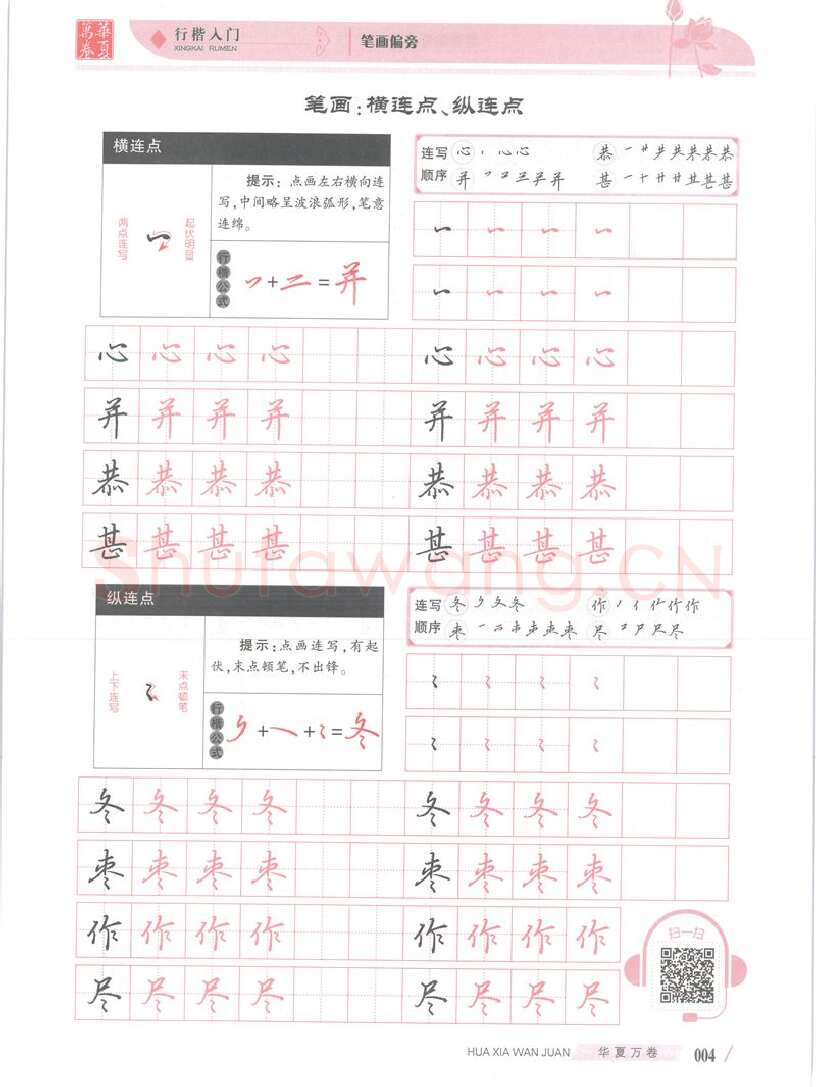 華夏萬卷
行楷入门
XINGKAI RUMEN
笔画偏旁
笔画：横连点、纵连点
横连点
两点连写
起伏明显
提示：点画左右横向连
写，中间略呈波浪弧形，笔意
连绵。
行楷公式
= 并
连写顺序
心 心心
恭 共 恭恭恭
并 并并
甚 一 十 廿 甚甚
心 心 心 心 心 心 心 心
并 并 并 并 并 并 并 并
恭 恭 恭 恭 恭 恭 恭 恭
甚 甚 甚 甚 甚 甚 甚 甚
Shufawang.CN
纵连点
上下连写
末点顿笔
提示：点画连写，有起
伏，末点顿笔，不出锋。
行楷公式
= 冬
连写顺序
冬 夂 冬
作 亻 作作
枣 一 枣枣
尽 尸 尺 尽
冬 冬 冬 冬 冬 冬 冬 冬
枣 枣 枣 枣 枣 枣 枣 枣
作 作 作 作 作 作 作 作
尽 尽 尽 尽 尽 尽 尽 尽
扫一扫
HUA XIA WAN JUAN 华夏万卷 004 /